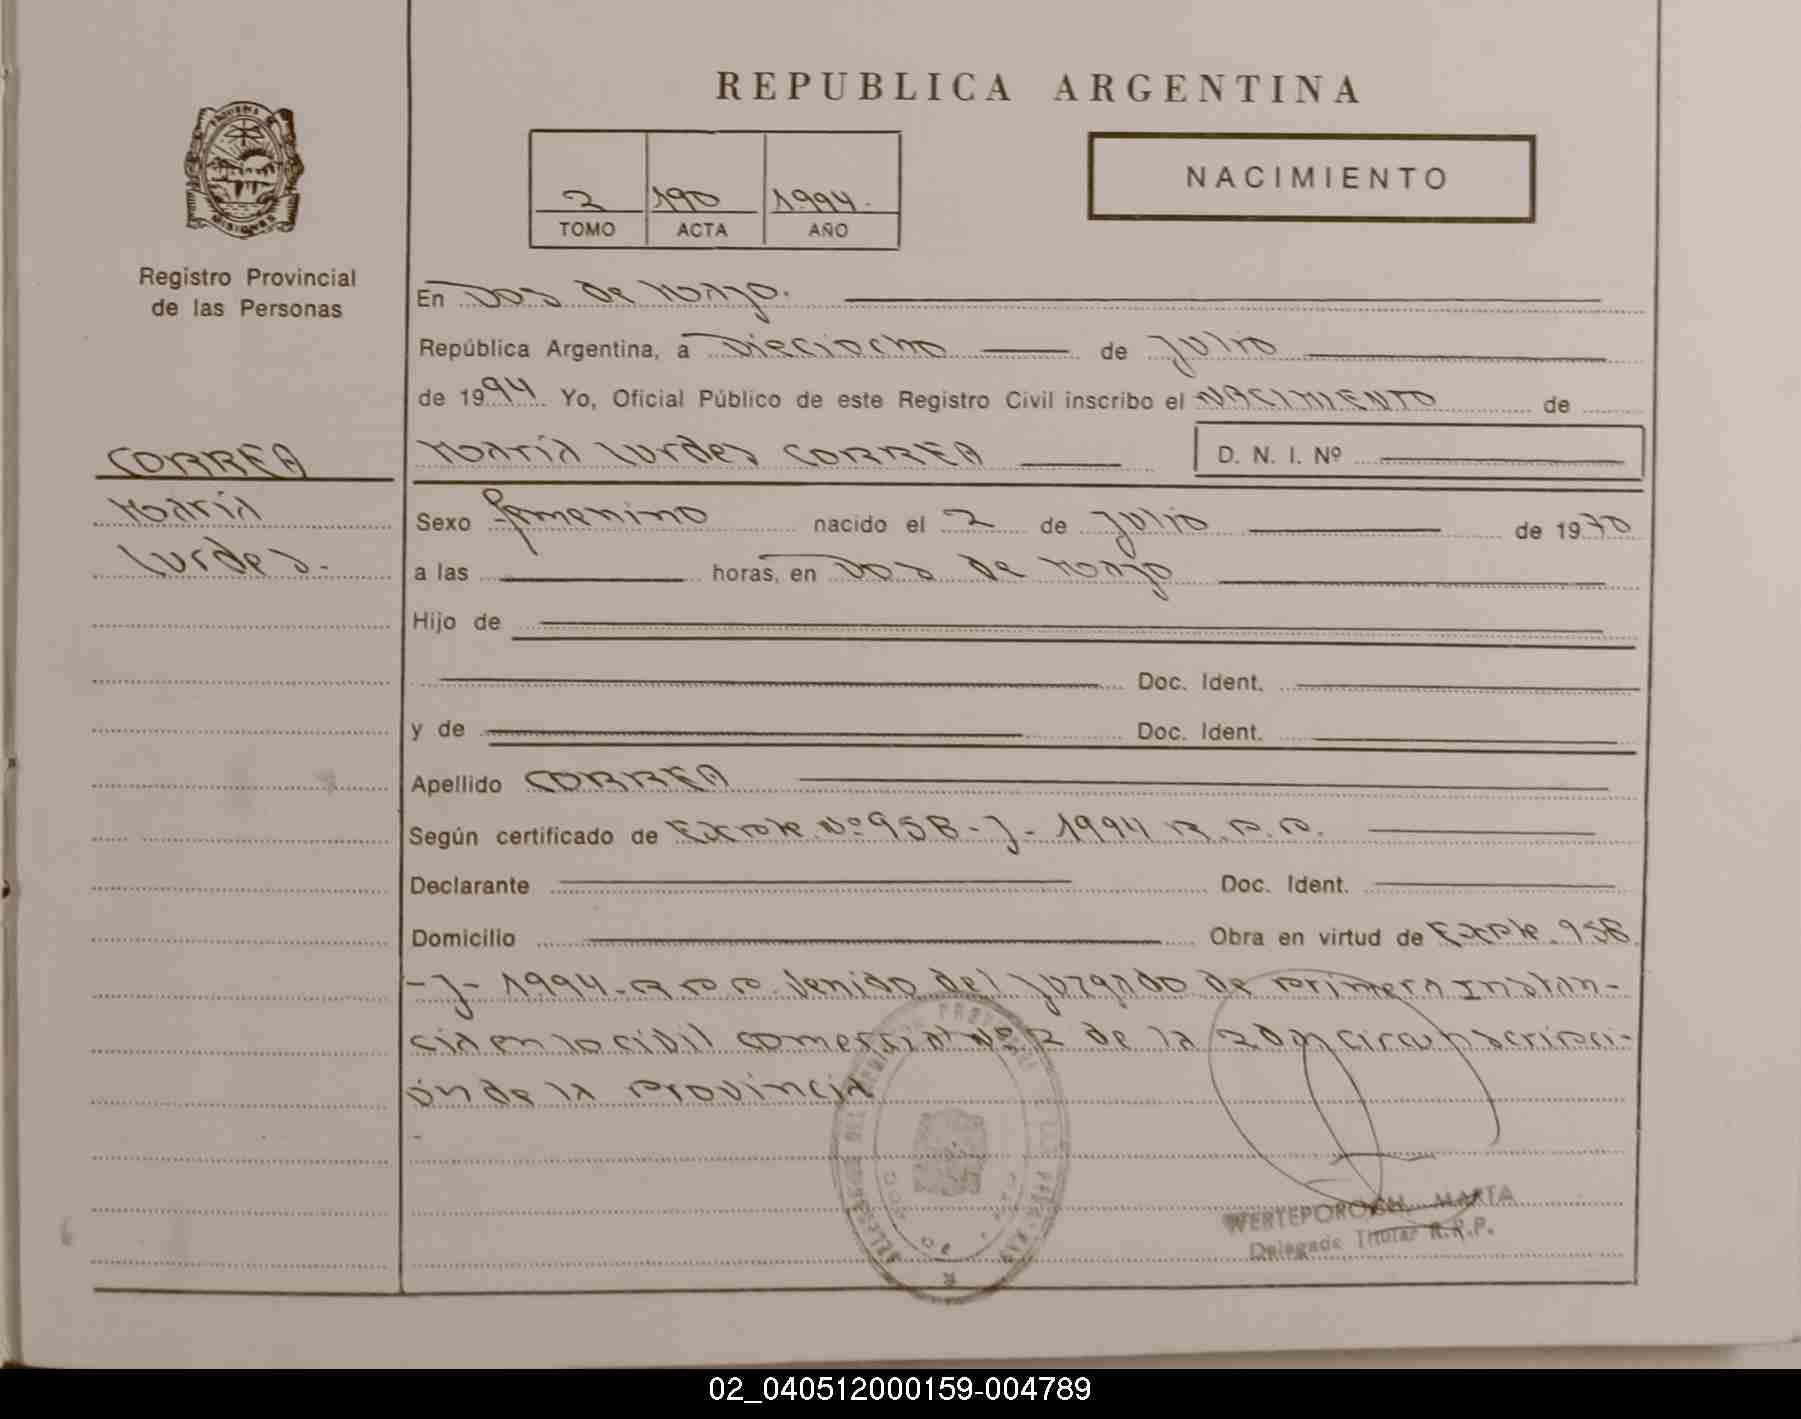 REPUBLICA ARGENTINA
MISIONES
Registro Provincial
de las Personas
2 190 1994.
TOMO ACTA AÑO
NACIMIENTO
En Dos de Mayo.
República Argentina, a Dieciocho de Julio
de 1994 Yo, Oficial Público de este Registro Civil inscribo el NACIMIENTO de
María Lurdes CORREA D. N. I. Nº
CORREA
María
Lurdes.
Sexo femenino nacido el 2 de Julio de 1970
a las horas, en Dos de Mayo
Hijo de
Doc. Ident.
y de Doc. Ident.
Apellido CORREA
Según certificado de Expte. Nº 958-J-1994 R.P.P.
Declarante Doc. Ident.
Domicilio Obra en virtud de Expte. 958
-J-1994-R.P.P. Venido del Juzgado de Primera Instan-
cia en lo Civil Comercial Nº 2 de la 2da Circunscripci-
ón de la Provincia
MARTA
Delegada Titular R.R.P.
02_040512000159-004789